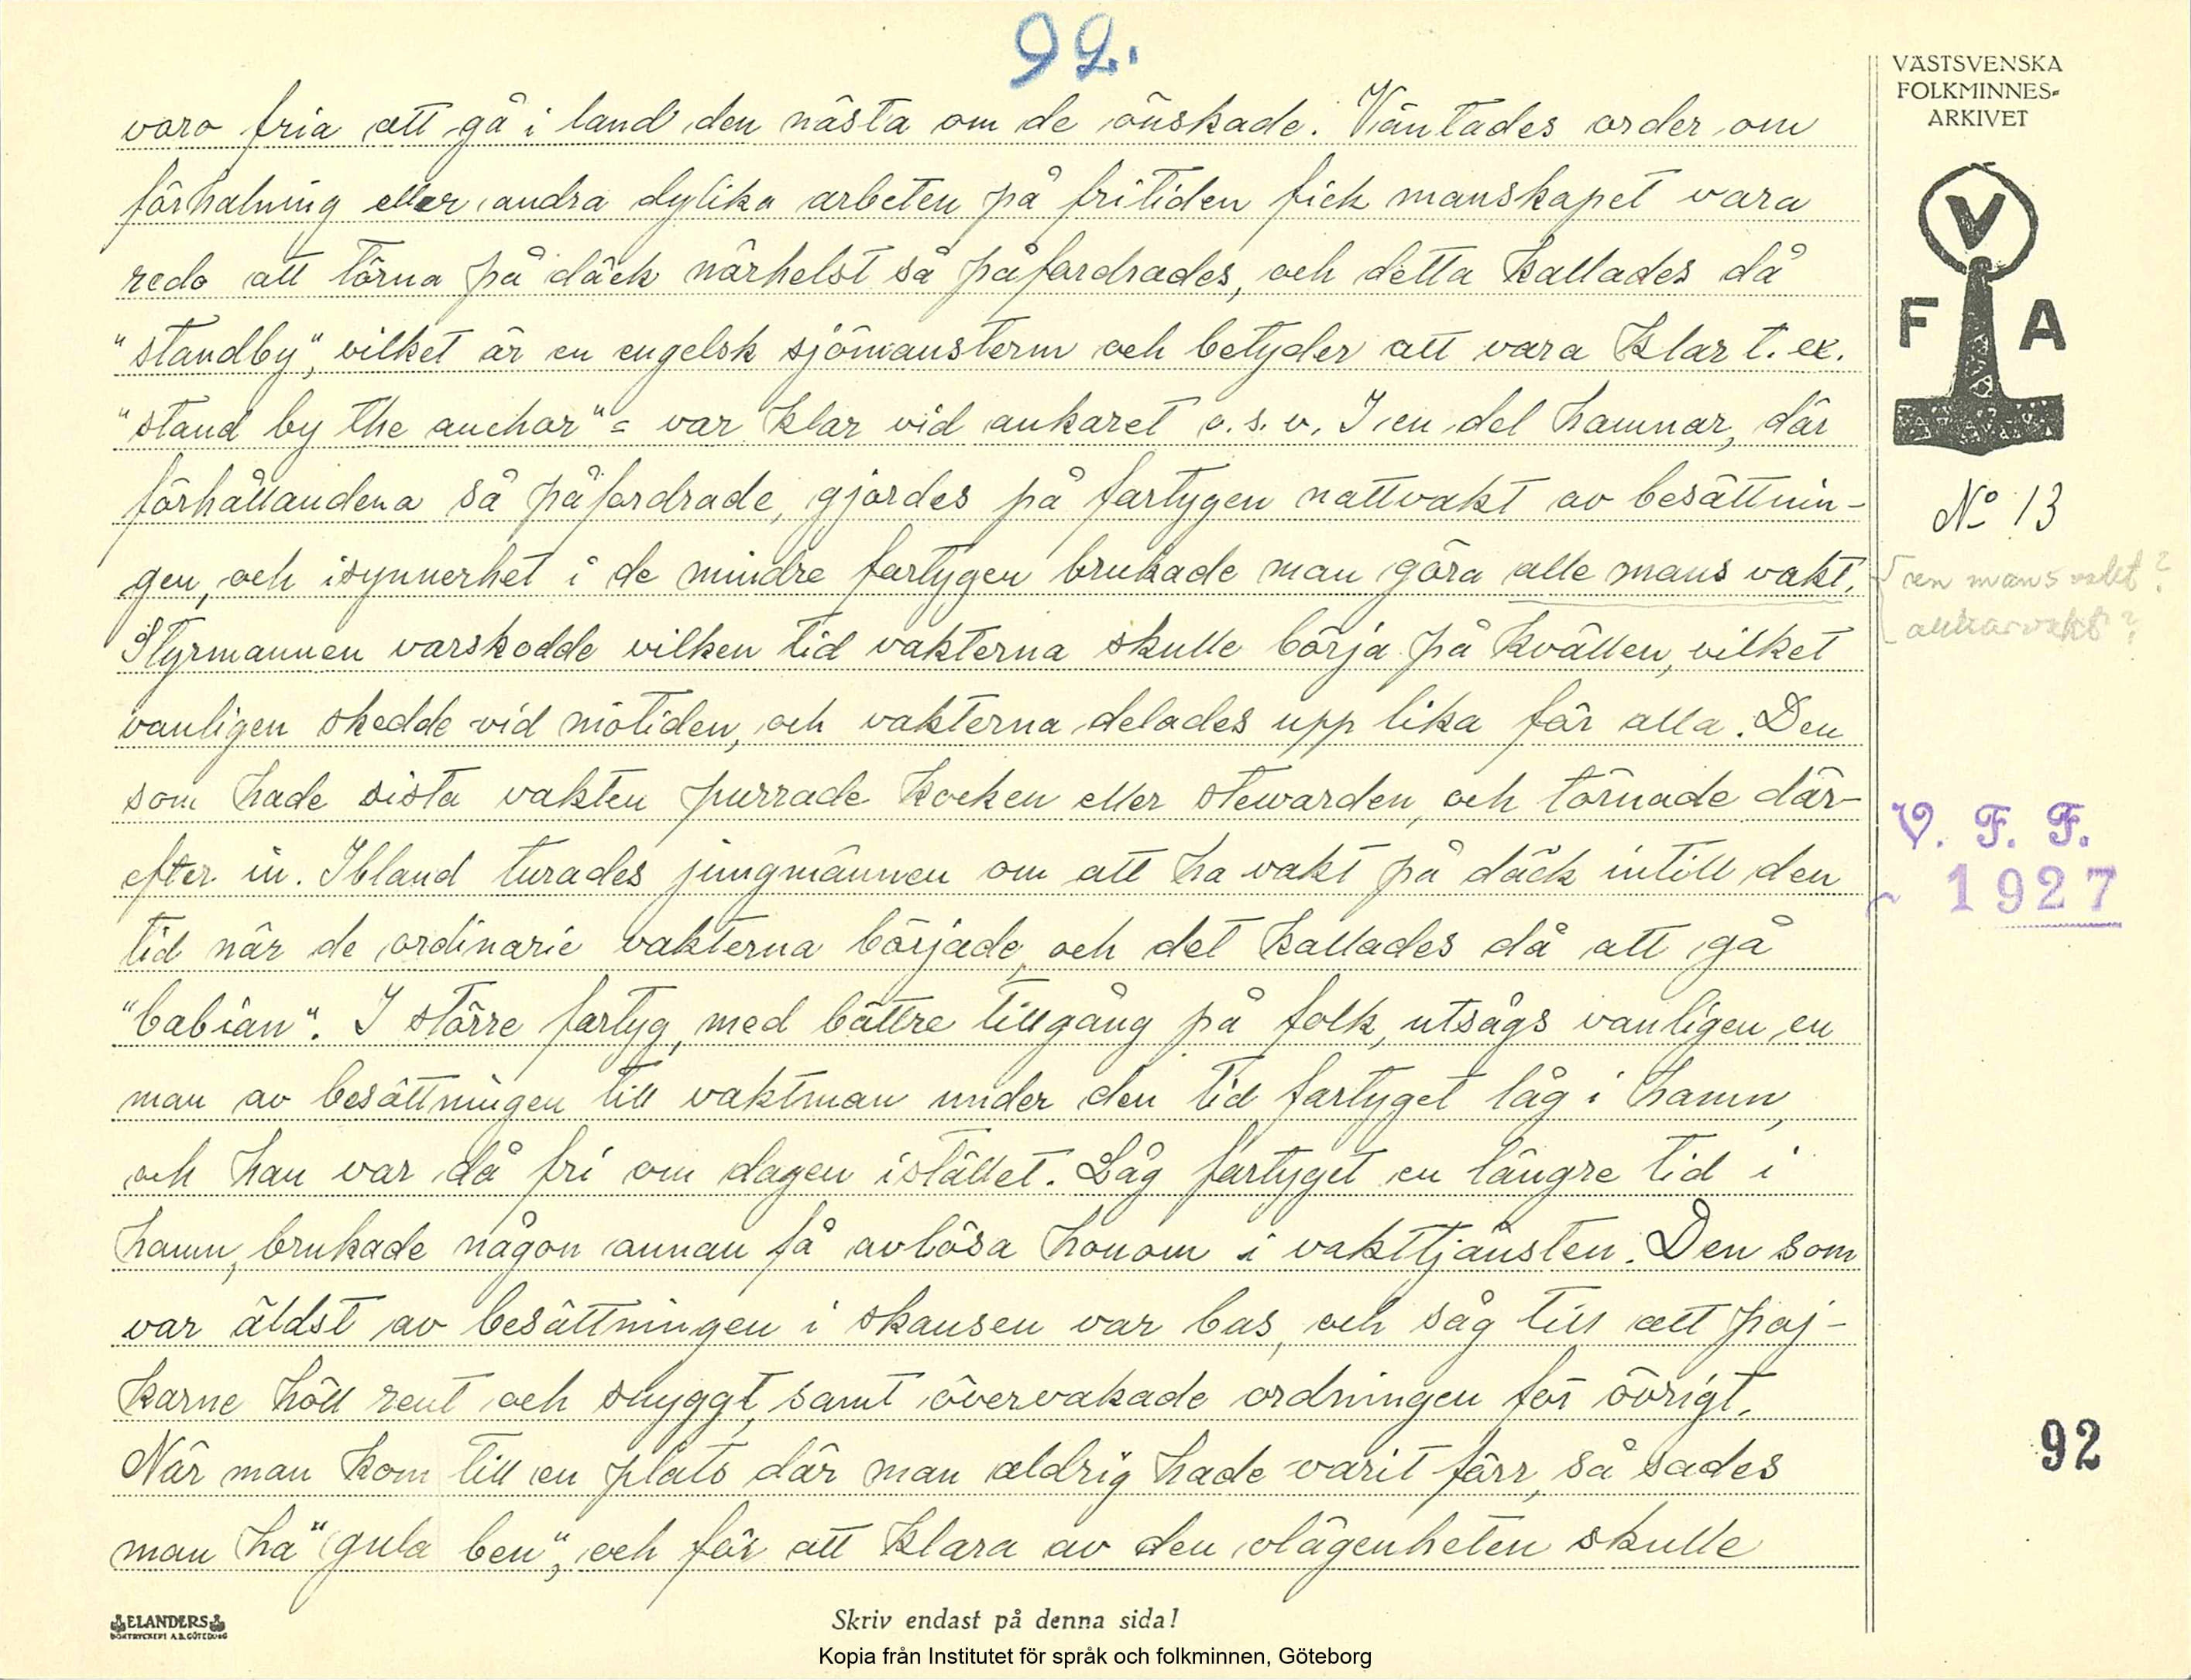 92.
varo fria att gå i land den nästa om de önskade. Väntades order om
förhalning eller andra dylika arbeten på fritiden fick manskapet vara
redo att törna på däck närhelst så påfordrades, och detta kallades då
"standby", vilket är en engelsk sjömansterm och betyder att vara klar t. ex.
"stand by the anchor" = var klar vid ankaret o. s. v. I en del hamnar, där
förhållandena så påfordrade, gjordes på fartygen nattvakt av besättnin-
gen, och isynnerhet i de mindre fartygen brukade man göra alle mans vakt.
Styrmannen varskodde vilken tid vakterna skulle börja på kvällen, vilket
vanligen skedde vid niotiden, och vakterna delades upp lika för alla. Den
som hade sista vakten purrade kocken eller stewarden, och törnade där-
efter in. Ibland turades jungmännen om att ha vakt på däck intill den
tid när de ordinarie vakterna började, och det kallades då att gå
"babian". I större fartyg, med bättre tillgång på folk, utsågs vanligen en
man av besättningen till vaktman under den tid fartyget låg i hamn,
och han var då fri om dagen istället. Låg fartyget en längre tid i
hamn, brukade någon annan få avlösa honom i vakttjänsten. Den som
var äldst av besättningen i skansen var bas, och såg till att poj-
karne höll rent och snyggt, samt övervakade ordningen för övrigt.
När man kom till en plats där man aldrig hade varit förr, så sades
man ha "gula ben", och för att klara av den olägenheten skulle
VÄSTSVENSKA
FOLKMINNES-
ARKIVET
V
F A
No 13
en mans vakt?
ankarvakt?
V. F. F.
1927
92
ELANDERS
BOKTRYCKERI A.B. GÖTEBORG
Skriv endast på denna sida!
Kopia från Institutet för språk och folkminnen, Göteborg